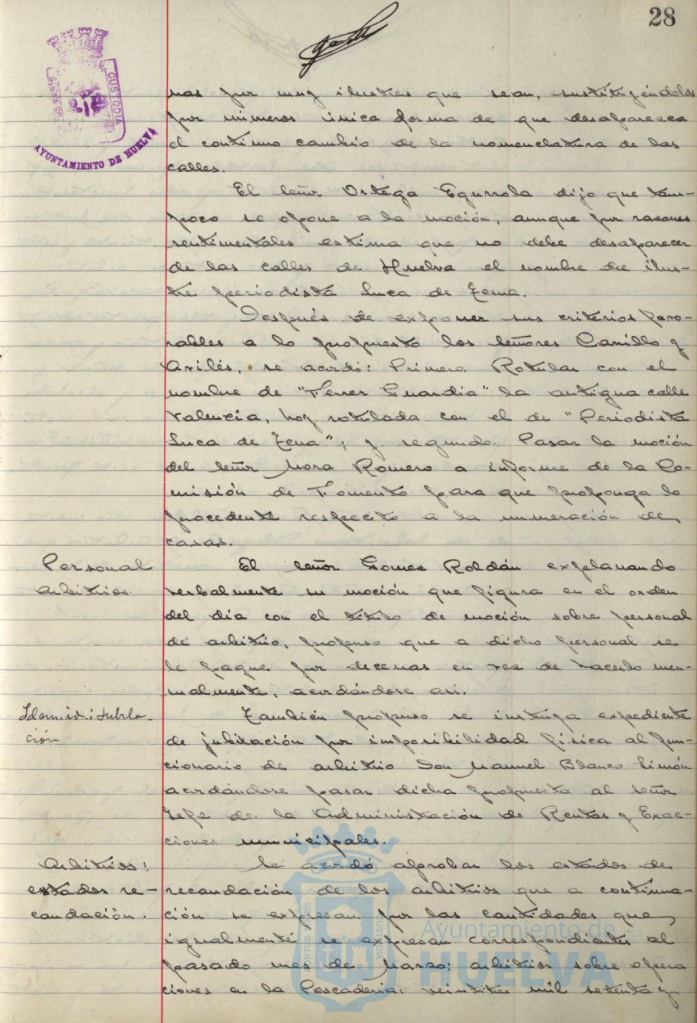 28
CUSTODIA
AYUNTAMIENTO DE HUELVA
nas por muy ilustres que sean, sustituyéndolos
por números única forma de que desaparezca
el continuo cambio de la nomenclatura de las
calles.
El Señor Ortega Egurrola dijo que tam-
poco se opone a la moción, aunque por razones
sentimentales estima que no debe desaparecer
de las calles de Huelva el nombre del ilus-
tre periodista Luca de Tena.
Después de exponer sus criterios favo-
rables a lo propuesto los Señores Carrillo y
Avilés, se acordó: Primero. Rotular con el
nombre de "Ferrer Guardia" la antigua calle
Valencia, hoy rotulada con el de "Periodista
Luca de Tena"; y segundo. Pasar la moción
del Señor Mora Romero a informe de la Co-
misión de Fomento para que proponga lo
procedente respecto a la numeración de
casas.
Personal
Arbitrios.
El Señor Gomez Roldán explanando
verbalmente su moción que figura en el orden
del día con el título de moción sobre personal
de arbitrio, propuso que a dicho personal se
le pague por decenas en vez de hacerlo men-
sualmente, acordándose así.
Idem. id: jubila-
ción
También propuso se instruya expediente
de jubilación por imposibilidad física al fun-
cionario de arbitrio Don Manuel Blanco Limón
acordándose pasar dicha propuesta al Señor
Jefe de la Administración de Rentas y Exac-
ciones municipales.
Arbitrios:
estados re-
caudación.
Se acordó aprobar los estados de
recaudación de los arbitrios que a continua-
ción se expresan por las cantidades que
igualmente se expresan correspondientes al
pasado mes de Marzo: arbitrios sobre opera
ciones en la Pescadería: veintitres mil setenta y
Ayuntamiento de
HUELVA